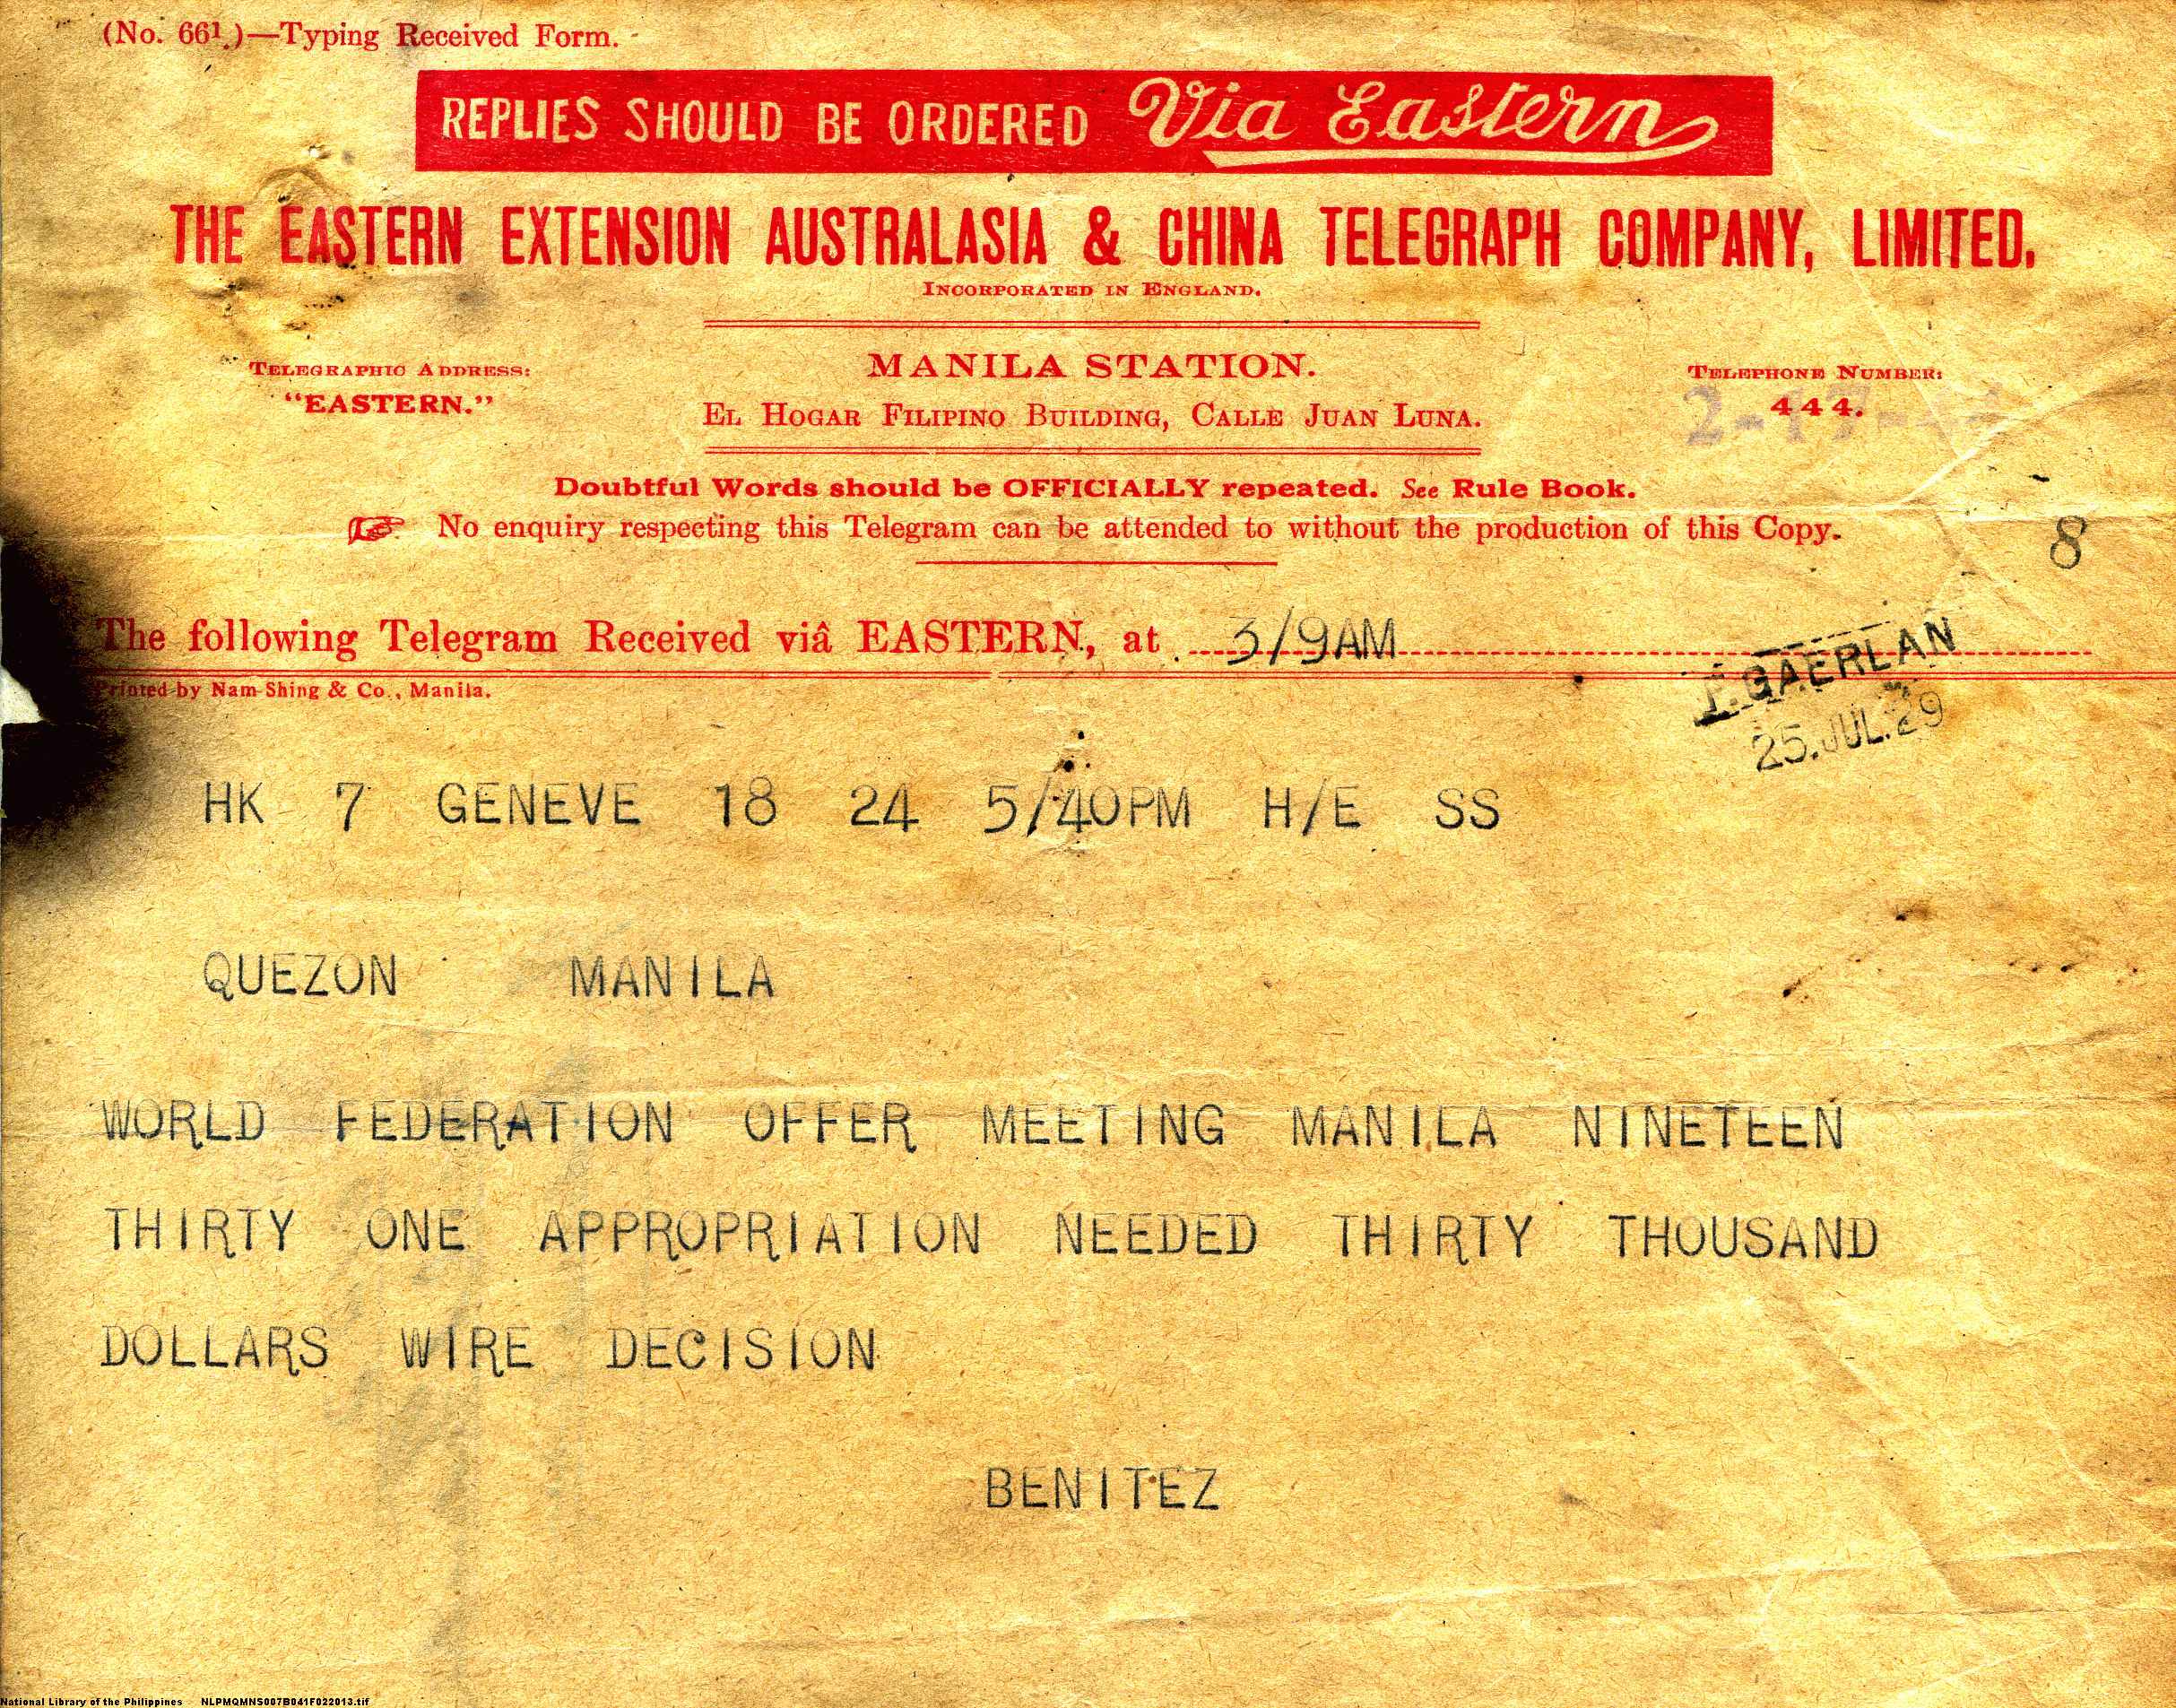 (No. 66¹.)—Typing Received Form.
REPLIES SHOULD BE ORDERED Via Eastern
THE EASTERN EXTENSION AUSTRALASIA & CHINA TELEGRAPH COMPANY, LIMITED.
INCORPORATED IN ENGLAND.
TELEGRAPHIC ADDRESS:
"EASTERN."
MANILA STATION.
EL HOGAR FILIPINO BUILDING, CALLE JUAN LUNA.
TELEPHONE NUMBER:
444.
Doubtful Words should be OFFICIALLY repeated. See Rule Book.
No enquiry respecting this Telegram can be attended to without the production of this Copy.
8
The following Telegram Received viâ EASTERN, at 3/9AM
Printed by Nam Shing & Co., Manila.
GAERLAN
25.JUL.29
HK 7 GENEVE 18 24 5/40PM H/E SS
QUEZON MANILA
WORLD FEDERATION OFFER MEETING MANILA NINETEEN
THIRTY ONE APPROPRIATION NEEDED THIRTY THOUSAND
DOLLARS WIRE DECISION
BENITEZ
National Library of the Philippines NLPMQMNS007B041F022013.tif